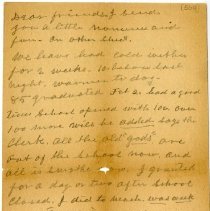 (504)
Dear friends, I send
you a little nonsense and
pom on other sheet.
We have had cold wether
for 2 weeks. 10 below last
night. warmer to-day.
85 graduated Feb 2. had a good
time School opened with 100 over
100 more will be added says the
Clerk. All the old "gods" are
out of the School now and
all is I granted
for a day or two after School
closed, I did so much, was weak